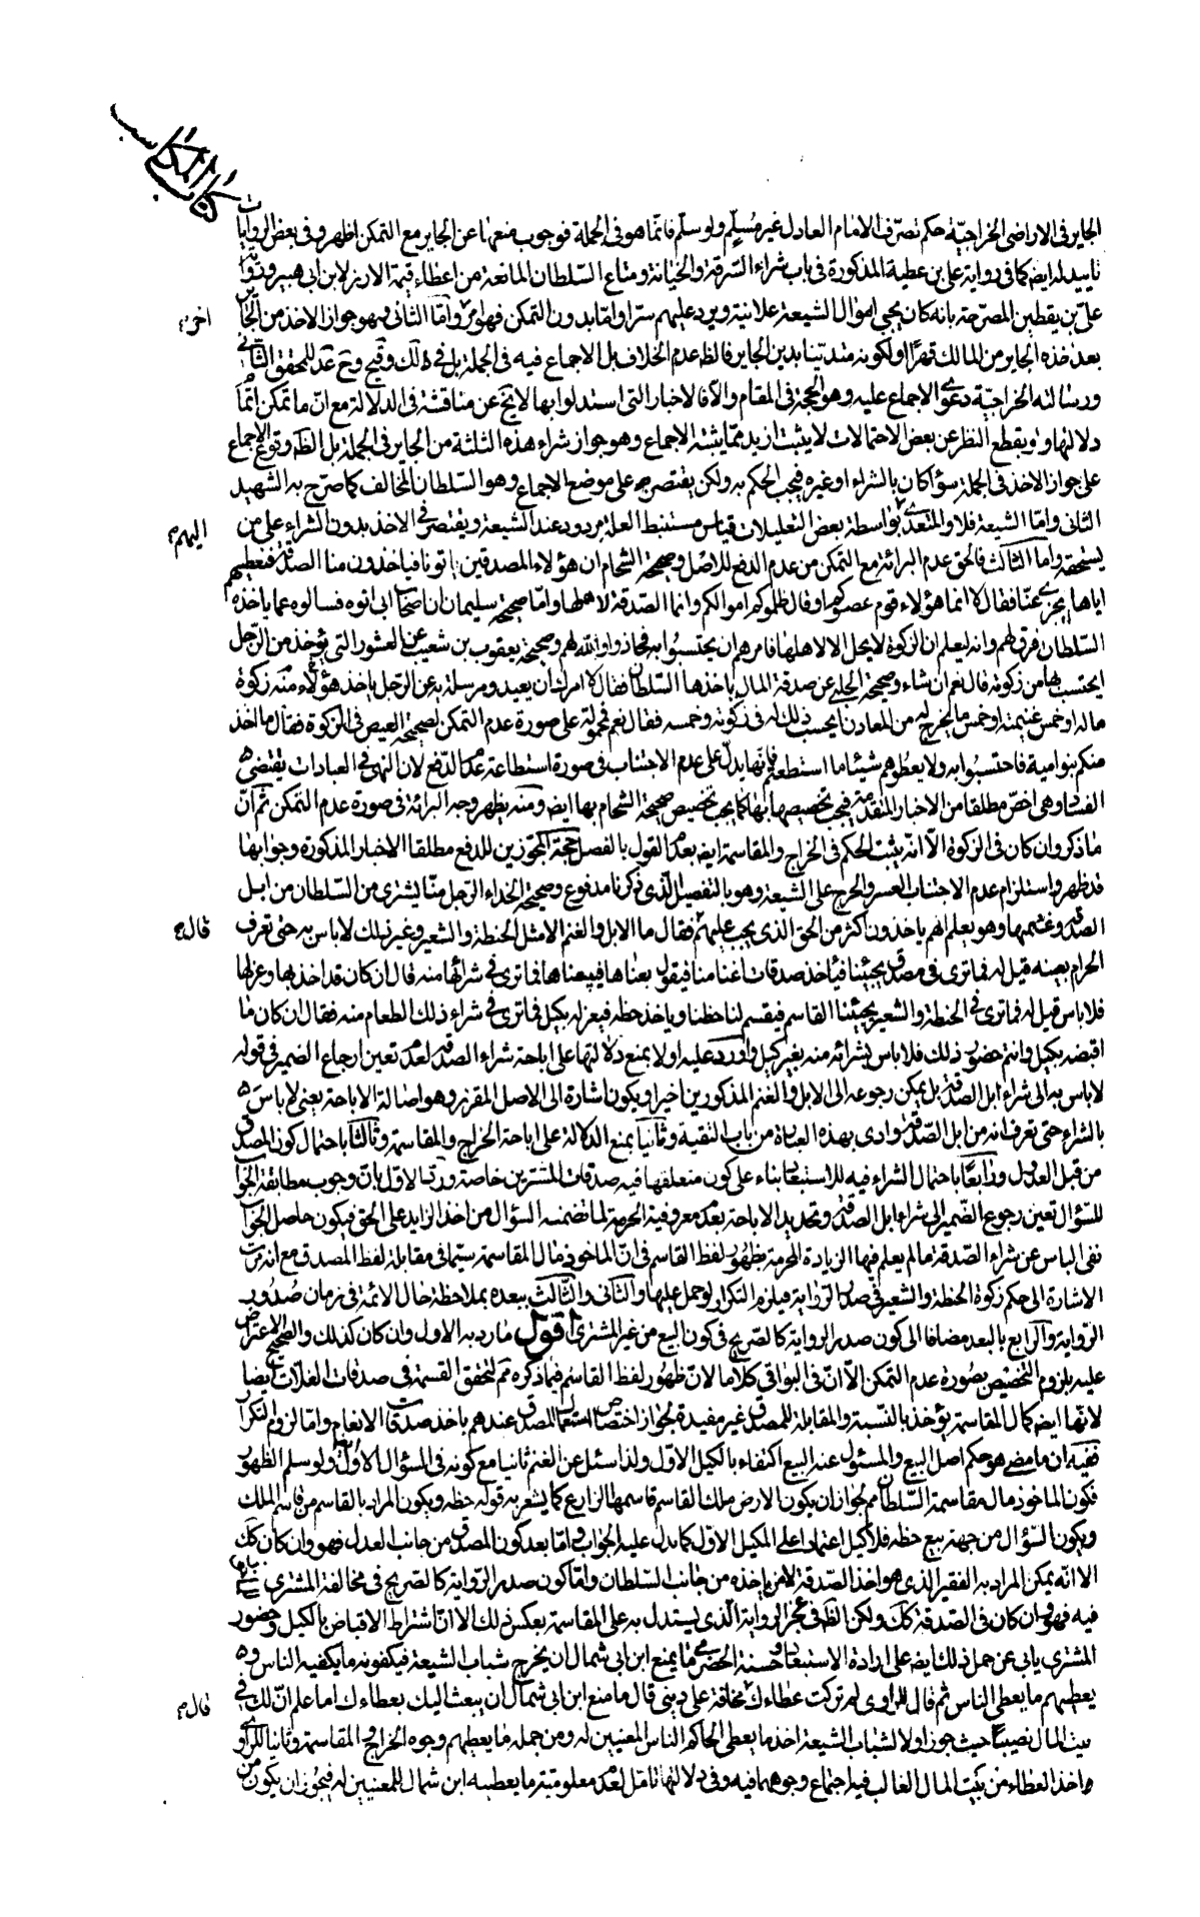 كتاب المكاسب
الجاير فى الاراضى الخراجيّة حكم تصرّف الامام العادل غير مُسلّم ولو سلّم فانّما هو فى الجملة فوجوب منعها عن الجاير مع التمكن اظهر وفى بعض الروايات
تاييد له ايضا كما فى رواية على بن عطية المذكورة فى باب شراء السّرقة والخيانة ومتاع السّلطان المانعة من اعطاء قيمة الارز لابن ابى هبيرة ورواية
علىّ بن يقطين المصرّحة بانه كان يجبى اموال الشيعة علانية ويرد عليهم سرّا وامّا بدون التمكن فهو امر واما الثانى وهو جواز الاخذ من الجاير
اخر
بعد اخذه الجاير من المالك قهرًا او لكونه متديّنا بدين الجاير فالظ عدم الخلاف بل الاجماع فيه فى الجملة بل فى ذلك وقيح وح عد للمحقق الثانى
ورسالته الخراجيّة دعوى الاجماع عليه وهو الحجة فى المقام والا فالاخبار التى استدلوا بها لا يخ عن مناقشة فى الدلالة مع انّ ما تمكن اتمام
دلالتها ولو بقطع النظر عن بعض الاحتمالات لا يثبت ازيد ممّا يثبته الاجماع وهو جواز شراء هذه الثلثة من الجاير فى الجملة بل الظ وقوع الاجماع
على جواز الاخذ فى الجملة سواء كان بالشراء او غيره فيجب الحكم به ولكن يقتصر على موضع الاجماع وهو السّلطان المخالف كما صرّح به الشهيد
الثانى وامّا الشيعة فلا والتعدى بواسطة بعض التعليلات قياس مستنبط العلة مردود عند الشيعة ويقتصر فى الاخذ بدون الشراء على من
اليهم
يستحقه واما الثالث فالحق عدم البرائة مع التمكن من عدم الدفع للاصل وصحيحة الشحام ان هؤلاء المصدقين ياتونا فياخذون منا الصدقة فنعطيهم
اياها ايجزى عنّا فقال لا انما هؤلاء قوم غصبوكم او قال ظلموكم اموالكم وانما الصّدقة لاهلها وامّا صحيحة سليمان ان اصحاب ابى اتوه فسالوه عما ياخذه
السّلطان فرق لهم وانه ليعلم ان الزكوة لا يحل الا لاهلها فامرهم ان يحتسبوا به فجاز ذا والله لهم وصحيحة يعقوب بن شعيب عن العشور التى يؤخذ من الرّجل
ايحتسب بها من زكوته قال نعم ان شاء وصحيحة الحلبى عن صدقة المال ياخذها السّلطان فقال لا امرك ان يعيد ومرسلة به عن الرجل ياخذ هؤلاء منه زكوة
ماله او خمس غنيمته او خمس ما يخرج له من المعادن ايحسب ذلك له فى زكوته وخمسه فقال نعم فمحمولة على صورة عدم التمكن لصحيحة العيص فى الزكوة فقال ما اخذ
منكم بنو امية فاحتسبوا به ولا يعطوهم شيئا ما استطعتم فانّها يدلّ على عدم الاحتساب فى صورة استطاعة عدم الدّفع لان النهى فى العبادات يقتضى
الفساد وهى اخصّ مطلقا من الاخبار المتقدمة فيجب تخصيصها بها كما يجب تخصيص صحيحة الشحام بها ايضا ومنه يظهر وجه البرائة فى صورة عدم التمكن ثم انّ
ما ذكر وان كان فى الزكوة الّا انّه يثبت الحكم فى الخراج والمقاسمة ايضا بعدم القول بالفصل حجة المجوّزين للدفع مطلقا الاخبار المذكورة وجوابها
قد ظهر واستلزام عدم الاحتساب العسر والحرج على الشيعة وهو بالتفصيل الّذى ذكرنا مدفوع وصحيحة الحذاء الرّجل منّا يشترى من السّلطان من ابل
الصدقة وغنمها وهو يعلم انهم ياخذون اكثر من الحق الذى يجب عليهم فقال ما الابل والغنم الا مثل الحنطة والشعير وغير ذلك لا باس به حتى تعرف
قال
الحرام بعينه قيل له فما ترى فى مصدق يجيئنا فياخذ صدقات اغنامنا فيقول بعناها فيبيعناها فما ترى فى شرائها منه قال ان كان قد اخذها وعزلها
فلا باس قيل له فما ترى فى الحنطة والشعير يجيئنا القاسم فيقسم لنا حظنا وياخذ حظه فيعزله بكيل فما ترى فى شراء ذلك الطعام منه فقال ان كان ما
اقبضه بكيل وانتم حضور ذلك فلا باس بشرائه منه بغير كيل واورد عليه اولا بمنع دلالتها على اباحة شراء الصدقة لعدم تعين ارجاع الضمير فى قوله
لا باس به الى شراء ابل الصدقة بل يمكن رجوعه الى الابل والغنم المذكورين اخيرا ويكون اشارة الى الاصل المقرر وهو اصالة الاباحة يعنى لا باس
بالشراء حتى يعرف انه من ابل الصّدقة وادى بهذه العبارة من باب التقية وثانيا بمنع الدلالة على اباحة الخراج والمقاسمة وثالثا باحتمال كون المصدق
من قبل العدل ورابعًا باحتمال الشراء فيه للاستنقاذ بناء على كون متعلقها فيه صدقات المشترين خاصة ورد الاول بانّ وجوب مطابقة الجواب
للسؤال تعين رجوع الضّمير الى شراء ابل الصدقة وتحديد الاباحة بعدم معروفية الحرمة لما تضمنه السؤال من اخذ الزايد على الحق فيكون حاصل الجواب
نفى الباس عن شراء الصّدقة ما لم يعلم فيها الزيادة المحرمة بظهور لفظ القاسم فى انّ الماخوذ مال المقاسمة سيّما فى مقابلة لفظ المصدق مع انه مرت
الاشارة الى حكم زكوة الحنطة والشعير فى صدر الرّواية فيلزم التكرار لو حمل عليها والثانى والثالث ببعده بملاحظة حال الائمة فى زمان صُدُور
الرّواية والرابع بالبعد مضافا الى كون صدر الرواية كالصّريح فى كون البيع من غير المشترى اقول ما رد به الاول وان كان كذلك والصحيح الاعتراض
عليه بلزوم التخصيص بصُورة عدم التمكن الّا انّ فى البواقى كلامًا لانّ ظهُور لفظ القاسم فيما ذكره مم لتحقق القسمة فى صدقات الغلّات ايضا
لانّها ايضا كمال المقاسمة يؤخذ بالنّسبة والمقابلة للمصدق غير مفيدة لجواز اختصاص استعمال المصدق عندهم باخذ صدقات الانعام وامّا لزوم التكرار
ففيه ان ما مضى هو حكم اصل البيع والمسئول عنه البيع اكتفاء بالكيل الاوّل ولذا سئل عن الغنم ثانيا مع كونه فى السؤال الاوّل ايضا ولو سلم الظهور
فكون الماخوذ مال مقاسمة السّلطان مم لجواز ان يكون الارض ملك القاسم قاسمها الزارع كما يشعر به قوله حظه ويكون المراد بالقاسم من قاسم الملك
ويكون السّؤال من جهة بيع حظه فلا كيل اعتمادا على المكيل الاوّل كما يدل عليه الجواب وامّا بعد كون المصدق من جانب العدل فهو وان كان كك
الا انّه يمكن المراد به الفقير الذى هو اخذ الصّدقة لا من ياخذه من جانب السّلطان وامّا كون صدر الرّواية كالصّريح فى مخالفة المشترى
فيه فهو وان كان فى الصّدقة كك ولكن الظ فى عجز الرواية الّذى يستدل به على المقاسمة بعكس ذلك الا انّ اشتراط الاقباض بالكيل وحضور
المشترى يابى عن حمل ذلك ايضا على ارادة الاستنقاذ وحسنة الحضرمى ما يمنع ابن ابى شمال ان يخرج شباب الشيعة فيكفونه ما يكفيه الناس و
يعطيهم ما يعطى الناس ثم قال للراوى لم تركت عطاءك قال مخافة على دينى قال ما منع ابن ابى شمال ان يبعث اليك بعطاءك اما علم انّ لك فى
قال
بيت المال نصيبًا حيث جوز اولا لشباب الشيعة اخذ ما يعطى الحاكم الناس المعنيين له ومن جملة ما يعطيهم وجوه الخراج والمقاسمة وثانيا للراوى
اخذ العطاء من بيت المال الغالب فيه اجتماع وجوههما فيه وفى دلالتها تامّل لعدم معلومية ما يعطيه ابن شمال للمعنيين له فيجوز ان يكون من